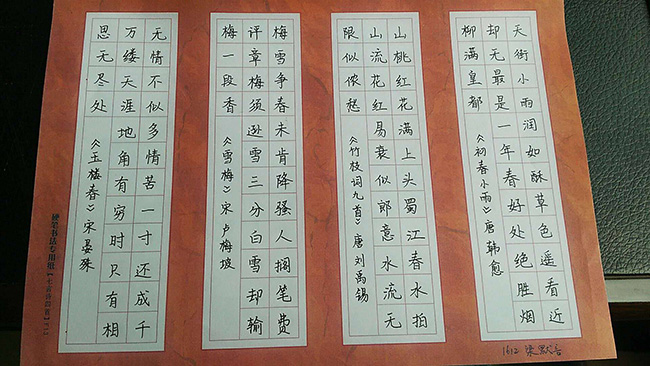 天街小雨润如酥草色遥看近
却无最是一年春好处绝胜烟
柳满皇都 《初春小雨》唐 韩愈
山桃红花满上头蜀江春水拍
山流花红易衰似郎意水流无
限似侬愁 《竹枝词九首》唐 刘禹锡
梅雪争春未肯降骚人搁笔费
评章梅须逊雪三分白雪却输
梅一段香 《雪梅》宋 卢梅坡
无情不似多情苦一寸还成千
万缕天涯地角有穷时只有相
思无尽处 《玉楼春》宋 晏殊
硬笔书法专用纸【七言诗四首】
1612